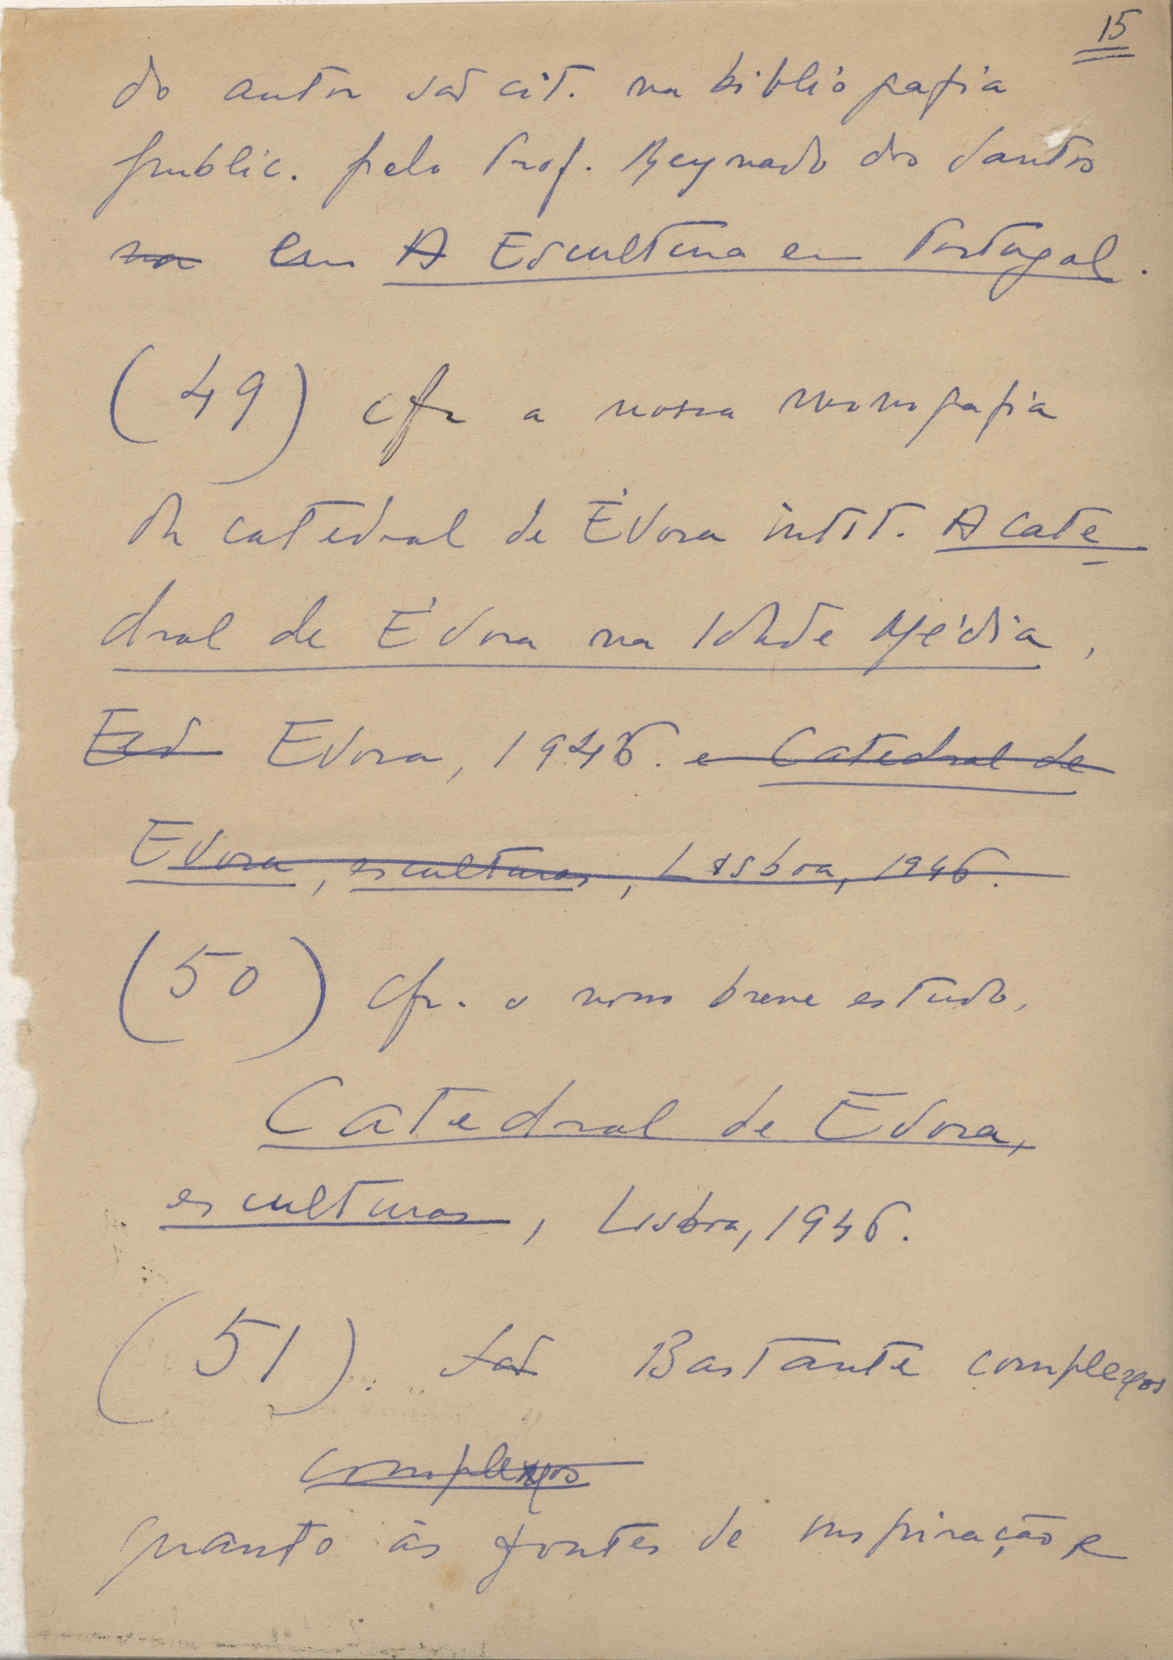 15
do autor são cit. na bibliografia
public. pelo Prof. Reynaldo dos Santos
na em A Escultura em Portugal.
(49) cfr a nossa monografia
da catedral de Évora intit. A Cate
dral de Évora na Idade Média,
Evora, 1946. e Catedral de
Evora, esculturas, Lisboa, 1946.
(50) Cfr. o nosso breve estudo,
Catedral de Evora,
esculturas, Lisboa, 1946.
(51). São Bastante complexos
complexos
quanto às fontes de inspiração e